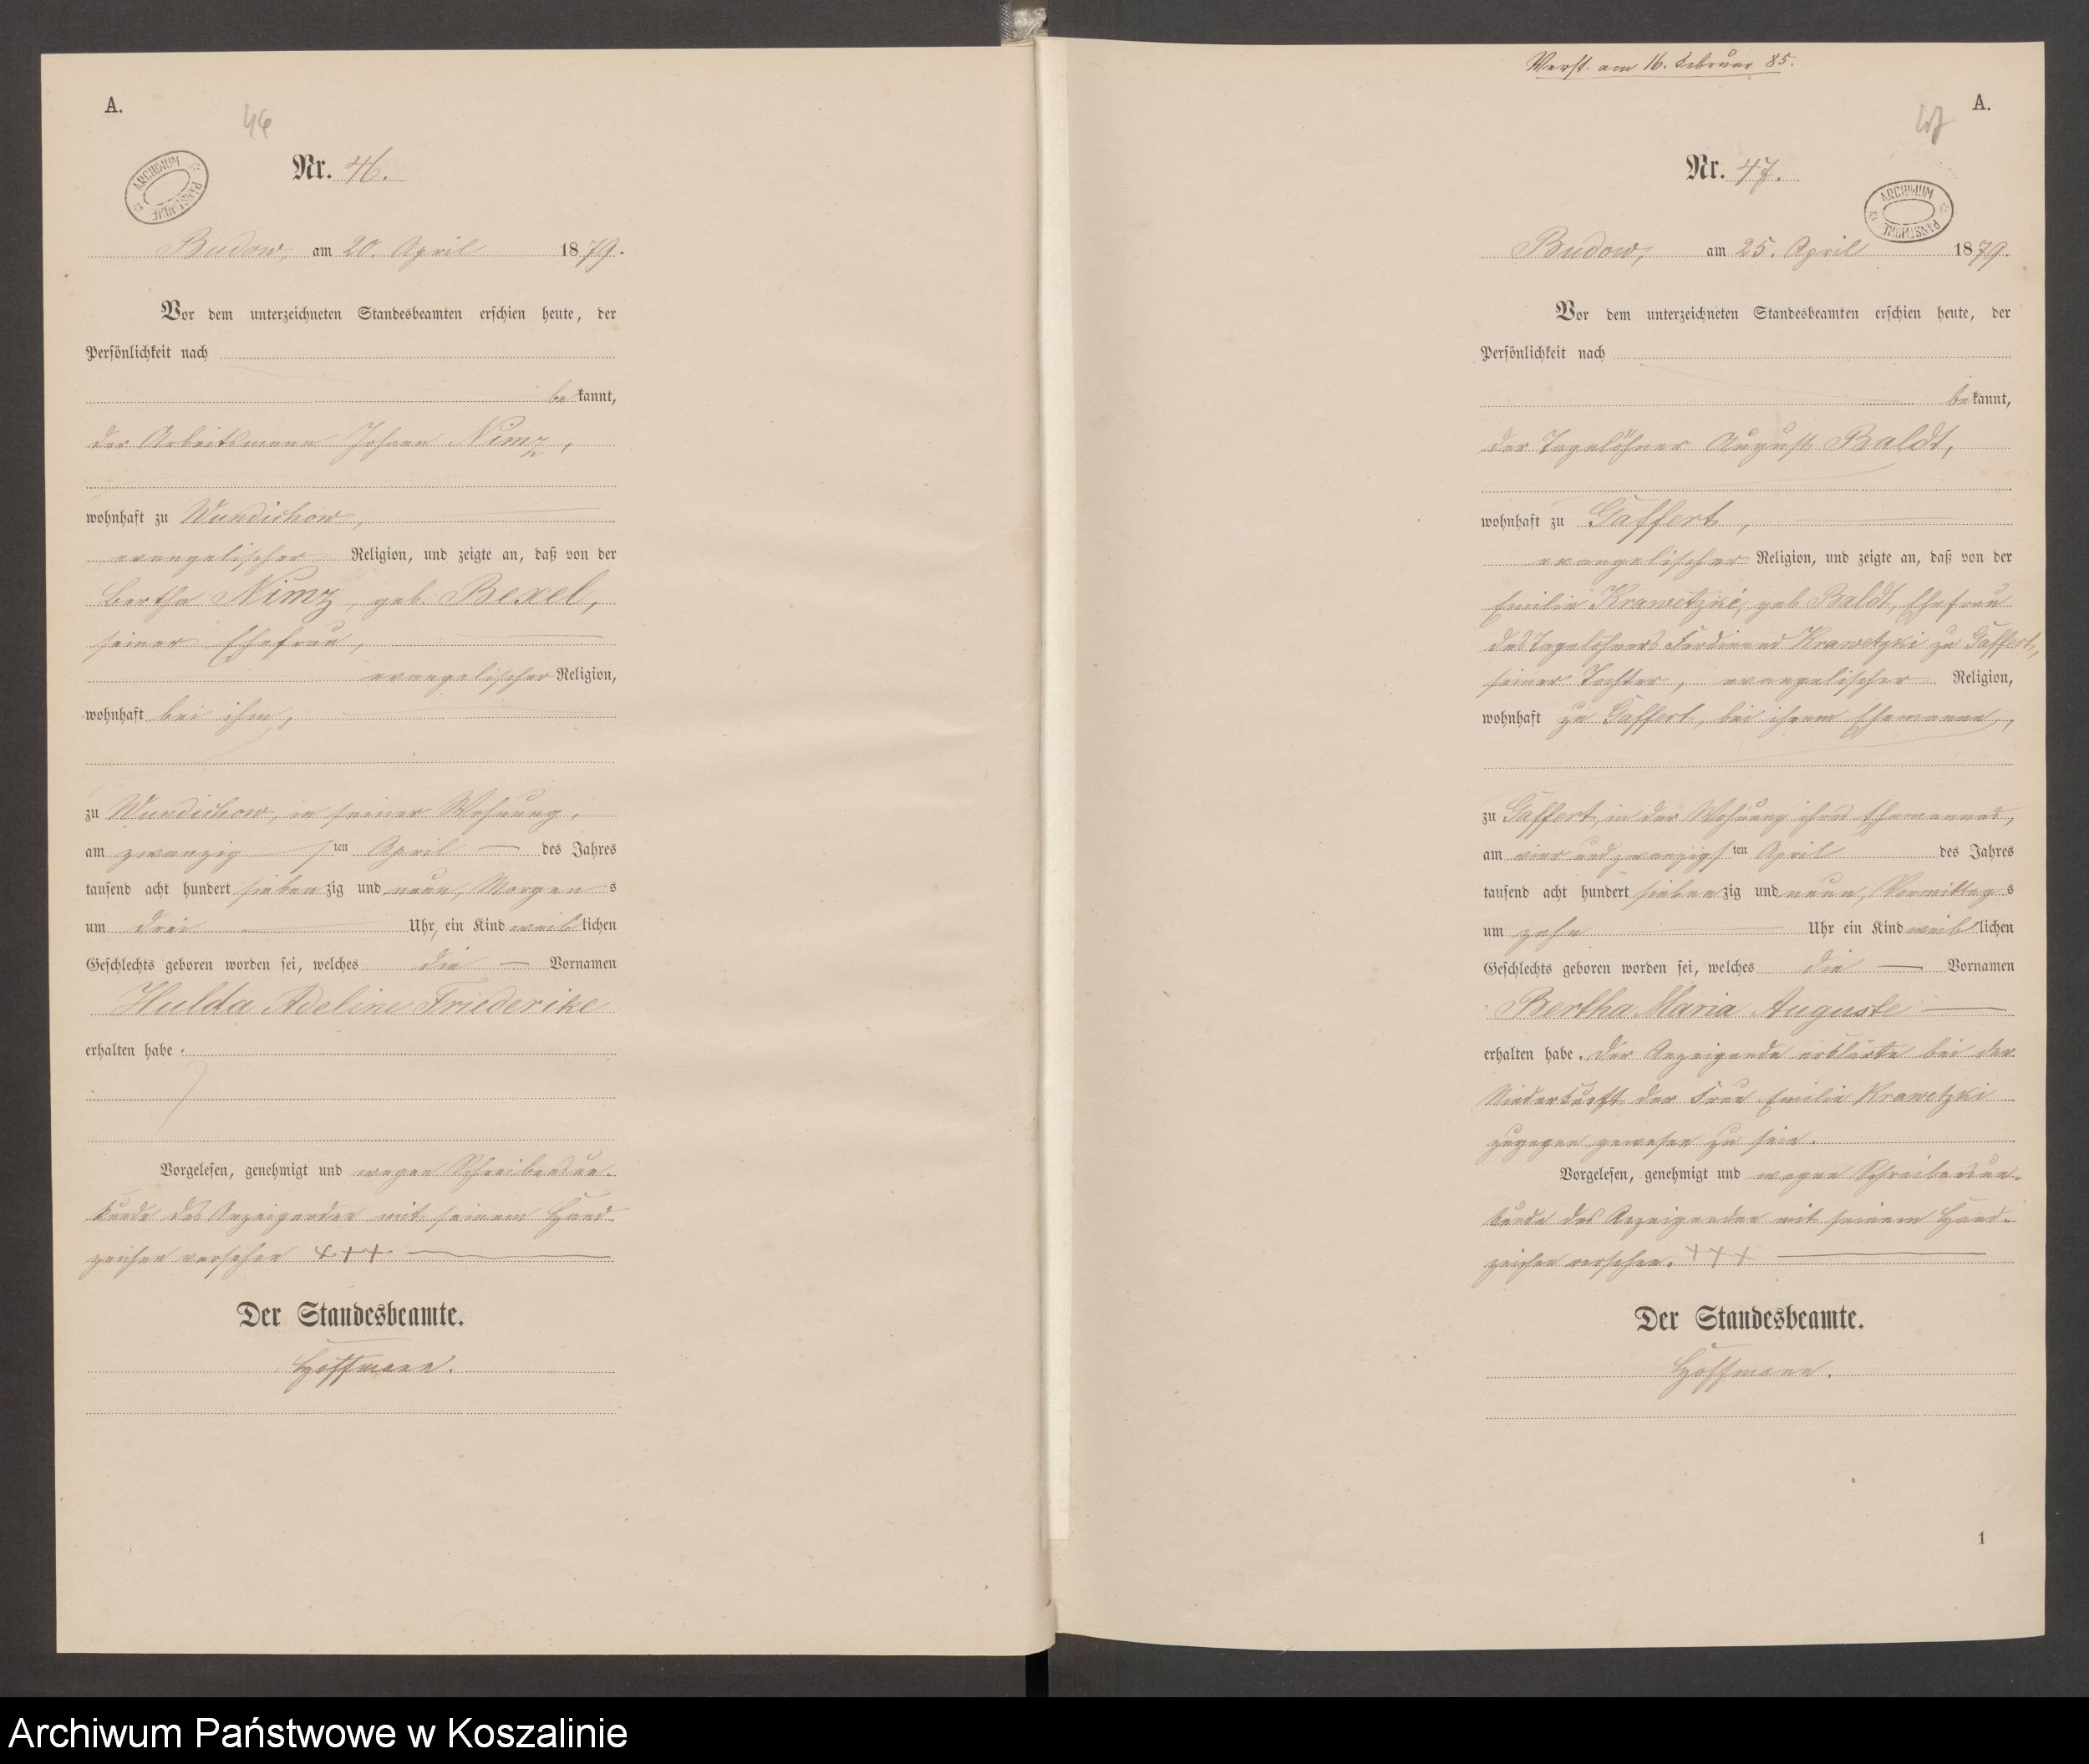 A.
46
Nr. 46.
ARCHIWUM PAŃSTWOWE
Budow, am 20. April 1879.
Vor dem unterzeichneten Standesbeamten erschien heute, der
Persönlichkeit nach
bekannt,
der Arbeitsmann Johann Nimz,
wohnhaft zu Wundichow,
evangelischer Religion, und zeigte an, daß von der
Bertha Nimz, geb. Bexel,
seiner Ehefrau,
evangelischer Religion,
wohnhaft bei ihm,
zu Wundichow, in seiner Wohnung,
am zwanzigsten April des Jahres
tausend acht hundert siebenzig und neun, Morgens
um drei Uhr, ein Kind weiblichen
Geschlechts geboren worden sei, welches die Vornamen
Hulda Adeline Friederike
erhalten habe.
Vorgelesen, genehmigt und wegen Schreibensun-
kunde des Anzeigenden mit seinem Hand-
zeichen versehen +++
Der Standesbeamte.
Hoffmann.
Verst. am 16. Februar 85.
A.
47
Nr. 47.
ARCHIWUM PAŃSTWOWE
Budow, am 25. April 1879.
Vor dem unterzeichneten Standesbeamten erschien heute, der
Persönlichkeit nach
bekannt,
der Tagelöhner August Baldt,
wohnhaft zu Gaffert,
evangelischer Religion, und zeigte an, daß von der
Emilie Krawetzki, geb. Baldt, Ehefrau
des Tagelöhners Ferdinand Krawetzki zu Gaffert,
seiner Tochter, evangelischer Religion,
wohnhaft zu Gaffert, bei ihrem Ehemanne,
zu Gaffert, in der Wohnung ihres Ehemannes,
am vier und zwanzigsten April des Jahres
tausend acht hundert siebenzig und neun, Vormittags
um zehn Uhr ein Kind weiblichen
Geschlechts geboren worden sei, welches die Vornamen
Bertha Maria Auguste
erhalten habe. Der Anzeigende erklärte bei der
Niederkunft der Frau Emilie Krawetzki
zugegen gewesen zu sein.
Vorgelesen, genehmigt und wegen Schreibensun-
kunde des Anzeigenden mit seinem Hand-
zeichen versehen. +++
Der Standesbeamte.
Hoffmann.
1
Archiwum Państwowe w Koszalinie